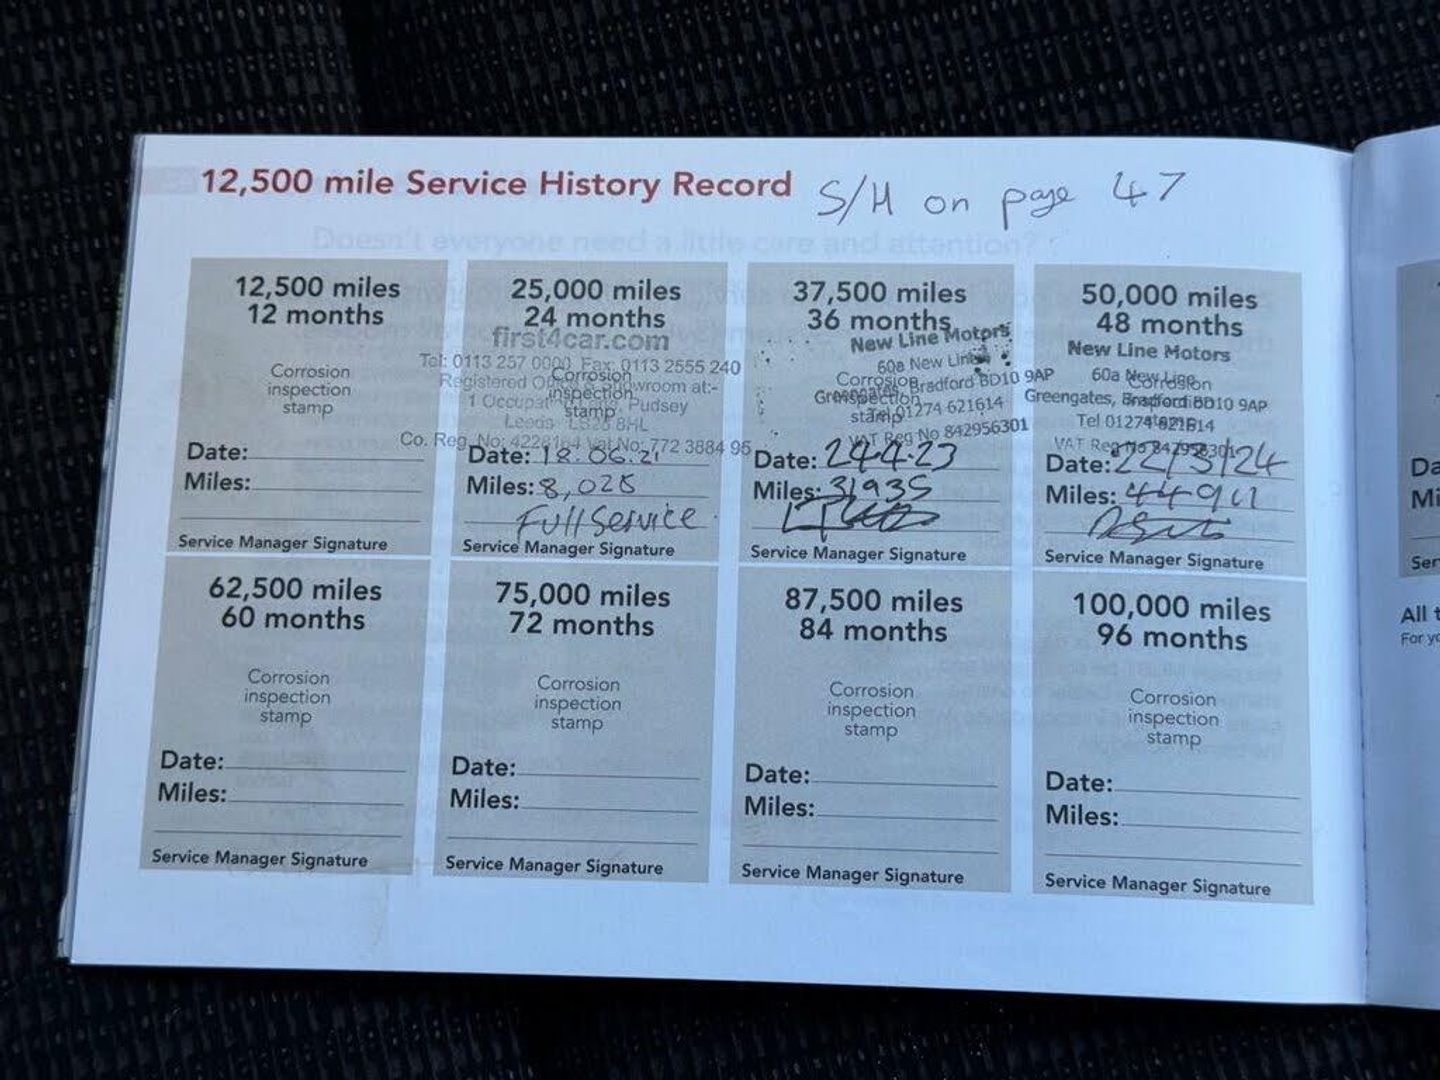 12,500 mile Service History Record S/H on page 47
Doesn't everyone need a little care and attention?
12,500 miles
12 months
Corrosion
inspection
stamp
Date:
Miles:
Service Manager Signature
25,000 miles
24 months
first4car.com
Tel: 0113 257 0000 Fax: 0113 2555 240
Corrosion
Registered Office & Showroom at:-
inspection
Pudsey
stamp
Leeds LS28 8HL
Co. Reg. No: Vat No: 772 3884 95
Date: 18.06.21
Miles: 8,028
Full Service
Service Manager Signature
37,500 miles
36 months
New Line Motors
60a New Line
Corrosion
Greengates, Bradford BD10 9AP
inspection
stamp
Tel 01274 621614
VAT Reg No 842956301
Date: 24.4.23
Miles: 31935
Service Manager Signature
50,000 miles
48 months
New Line Motors
60a New Line
Corrosion
Greengates, Bradford BD10 9AP
inspection
Tel 01274 621614
stamp
VAT Reg No 842956301
Date: 22/3/24
Miles: 44961
Service Manager Signature
62,500 miles
60 months
Corrosion
inspection
stamp
Date:
Miles:
Service Manager Signature
75,000 miles
72 months
Corrosion
inspection
stamp
Date:
Miles:
Service Manager Signature
87,500 miles
84 months
Corrosion
inspection
stamp
Date:
Miles:
Service Manager Signature
100,000 miles
96 months
Corrosion
inspection
stamp
Date:
Miles:
Service Manager Signature
Da
Mi
Ser
All t
For yo